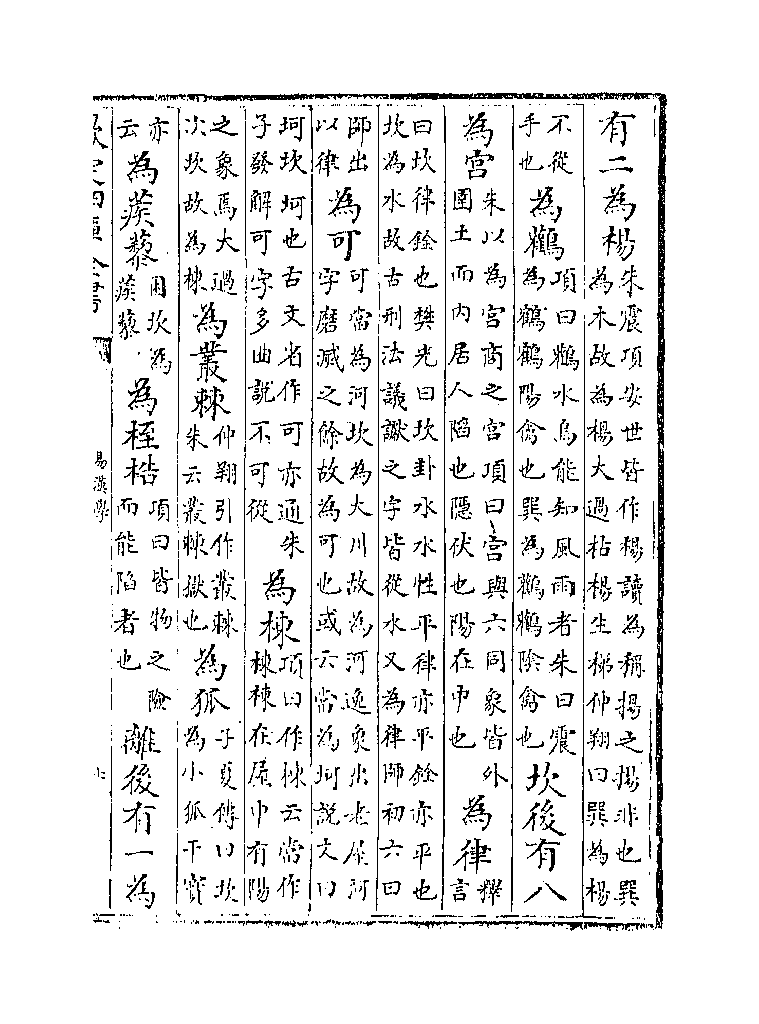 有二為楊朱震項安世皆作楊讀為稱揚之揚非也巽
為木故為楊大過枯楊生梯仲翔曰巽為楊
不從
手也為鸛項曰鸛水鳥能知風雨者朱曰震
為鶴鶴陽禽也巽為鸛鸛陰禽也坎後有八
為宮朱以為宮商之宮項曰宮與六同象皆外
圍土而內居人陷也隱伏也陽在中也為律釋
言
曰坎律銓也樊光曰坎卦水水性平律亦平銓亦平也
坎為水故古刑法議讞之字皆從水又為律師初六曰
師出
以律為可可當為河坎為大川故為河逸象出老屋河
字磨滅之餘故為可也或云當為坷說文曰
坷坎坷也古文省作可亦通朱
子發解可字多曲說不可從為棟項曰作棟云當作
棟棟在屋中有陽
之象焉大過
次坎故為棟為叢棘仲翔引作叢棘
朱云叢棘獄也為狐子夏傳曰坎
為小狐干寶
亦
云為蒺藜困坎為
蒺藜為桎梏項曰皆物之險
而能陷者也離後有一為
欽定四庫全書
易漢學